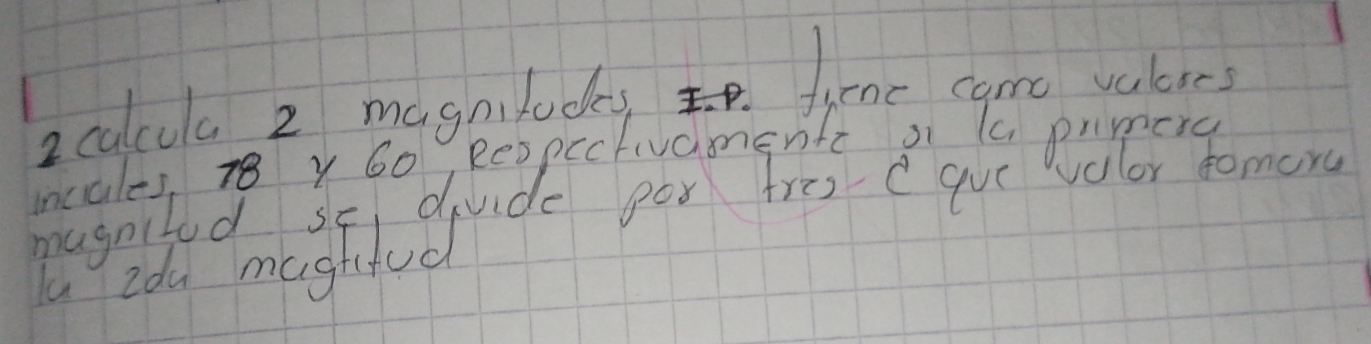 2 calcula 2 magnitudes, I.P. tiene como valores
inciales, 78 y 60, Respectivamente si la primera
magnitud se, divide por tres ¿ que valor tomara
la 2da magtitud